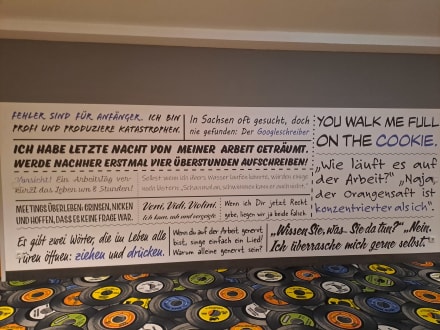 FEHLER SIND FÜR ANFÄNGER. ICH BIN
PROFI UND PRODUZIERE KATASTROPHEN.
In Sachsen oft gesucht, doch
nie gefunden: Der Googleschreiber
YOU WALK ME FULL
ON THE COOKIE.
ICH HABE LETZTE NACHT VON MEINER ARBEIT GETRÄUMT.
WERDE NACHHER ERSTMAL VIER ÜBERSTUNDEN AUFSCHREIBEN!
Vorsicht! Ein Arbeitstag ver-
kürzt das Leben um 8 Stunden!
"Wie läuft es auf
der Arbeit?" "Naja,
der Orangensaft ist
konzentrierter als ich".
MEETINGS ÜBERLEBEN: GRINSEN, NICKEN
UND HOFFEN, DASS ES KEINE FRAGE WAR.
Veni, Vidi, Violini.
Ich kam, sah und vergeigte.
Wenn ich Dir jetzt Recht
gebe, liegen wir ja beide falsch.
Es gibt zwei Wörter, die im Leben alle
Türen öffnen: ziehen und drücken.
Wenn du auf der Arbeit genervt
bist, singe einfach ein Lied!
Warum alleine genervt sein?
"Wissen Sie, was Sie da tun?" "Nein.
Ich überrasche mich gerne selbst."